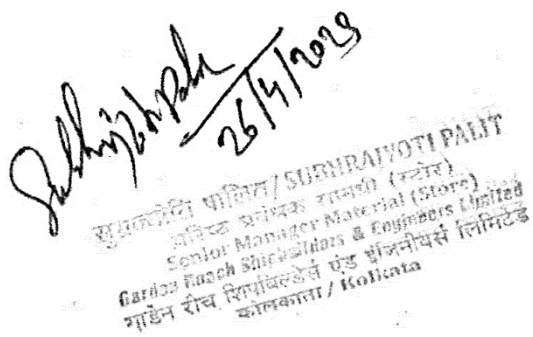 26/4/2023
सुभ्रज्योति पालित / SUBHRAJYOTI PALIT
वरिष्ठ प्रबंधक सामग्री (स्टोर)
Senior Manager Material (Store)
Garden Reach Shipbuilders & Engineers Limited
गार्डेन रीच शिपबिल्डर्स एंड इंजिनीयर्स लिमिटेड
कोलकाता / Kolkata